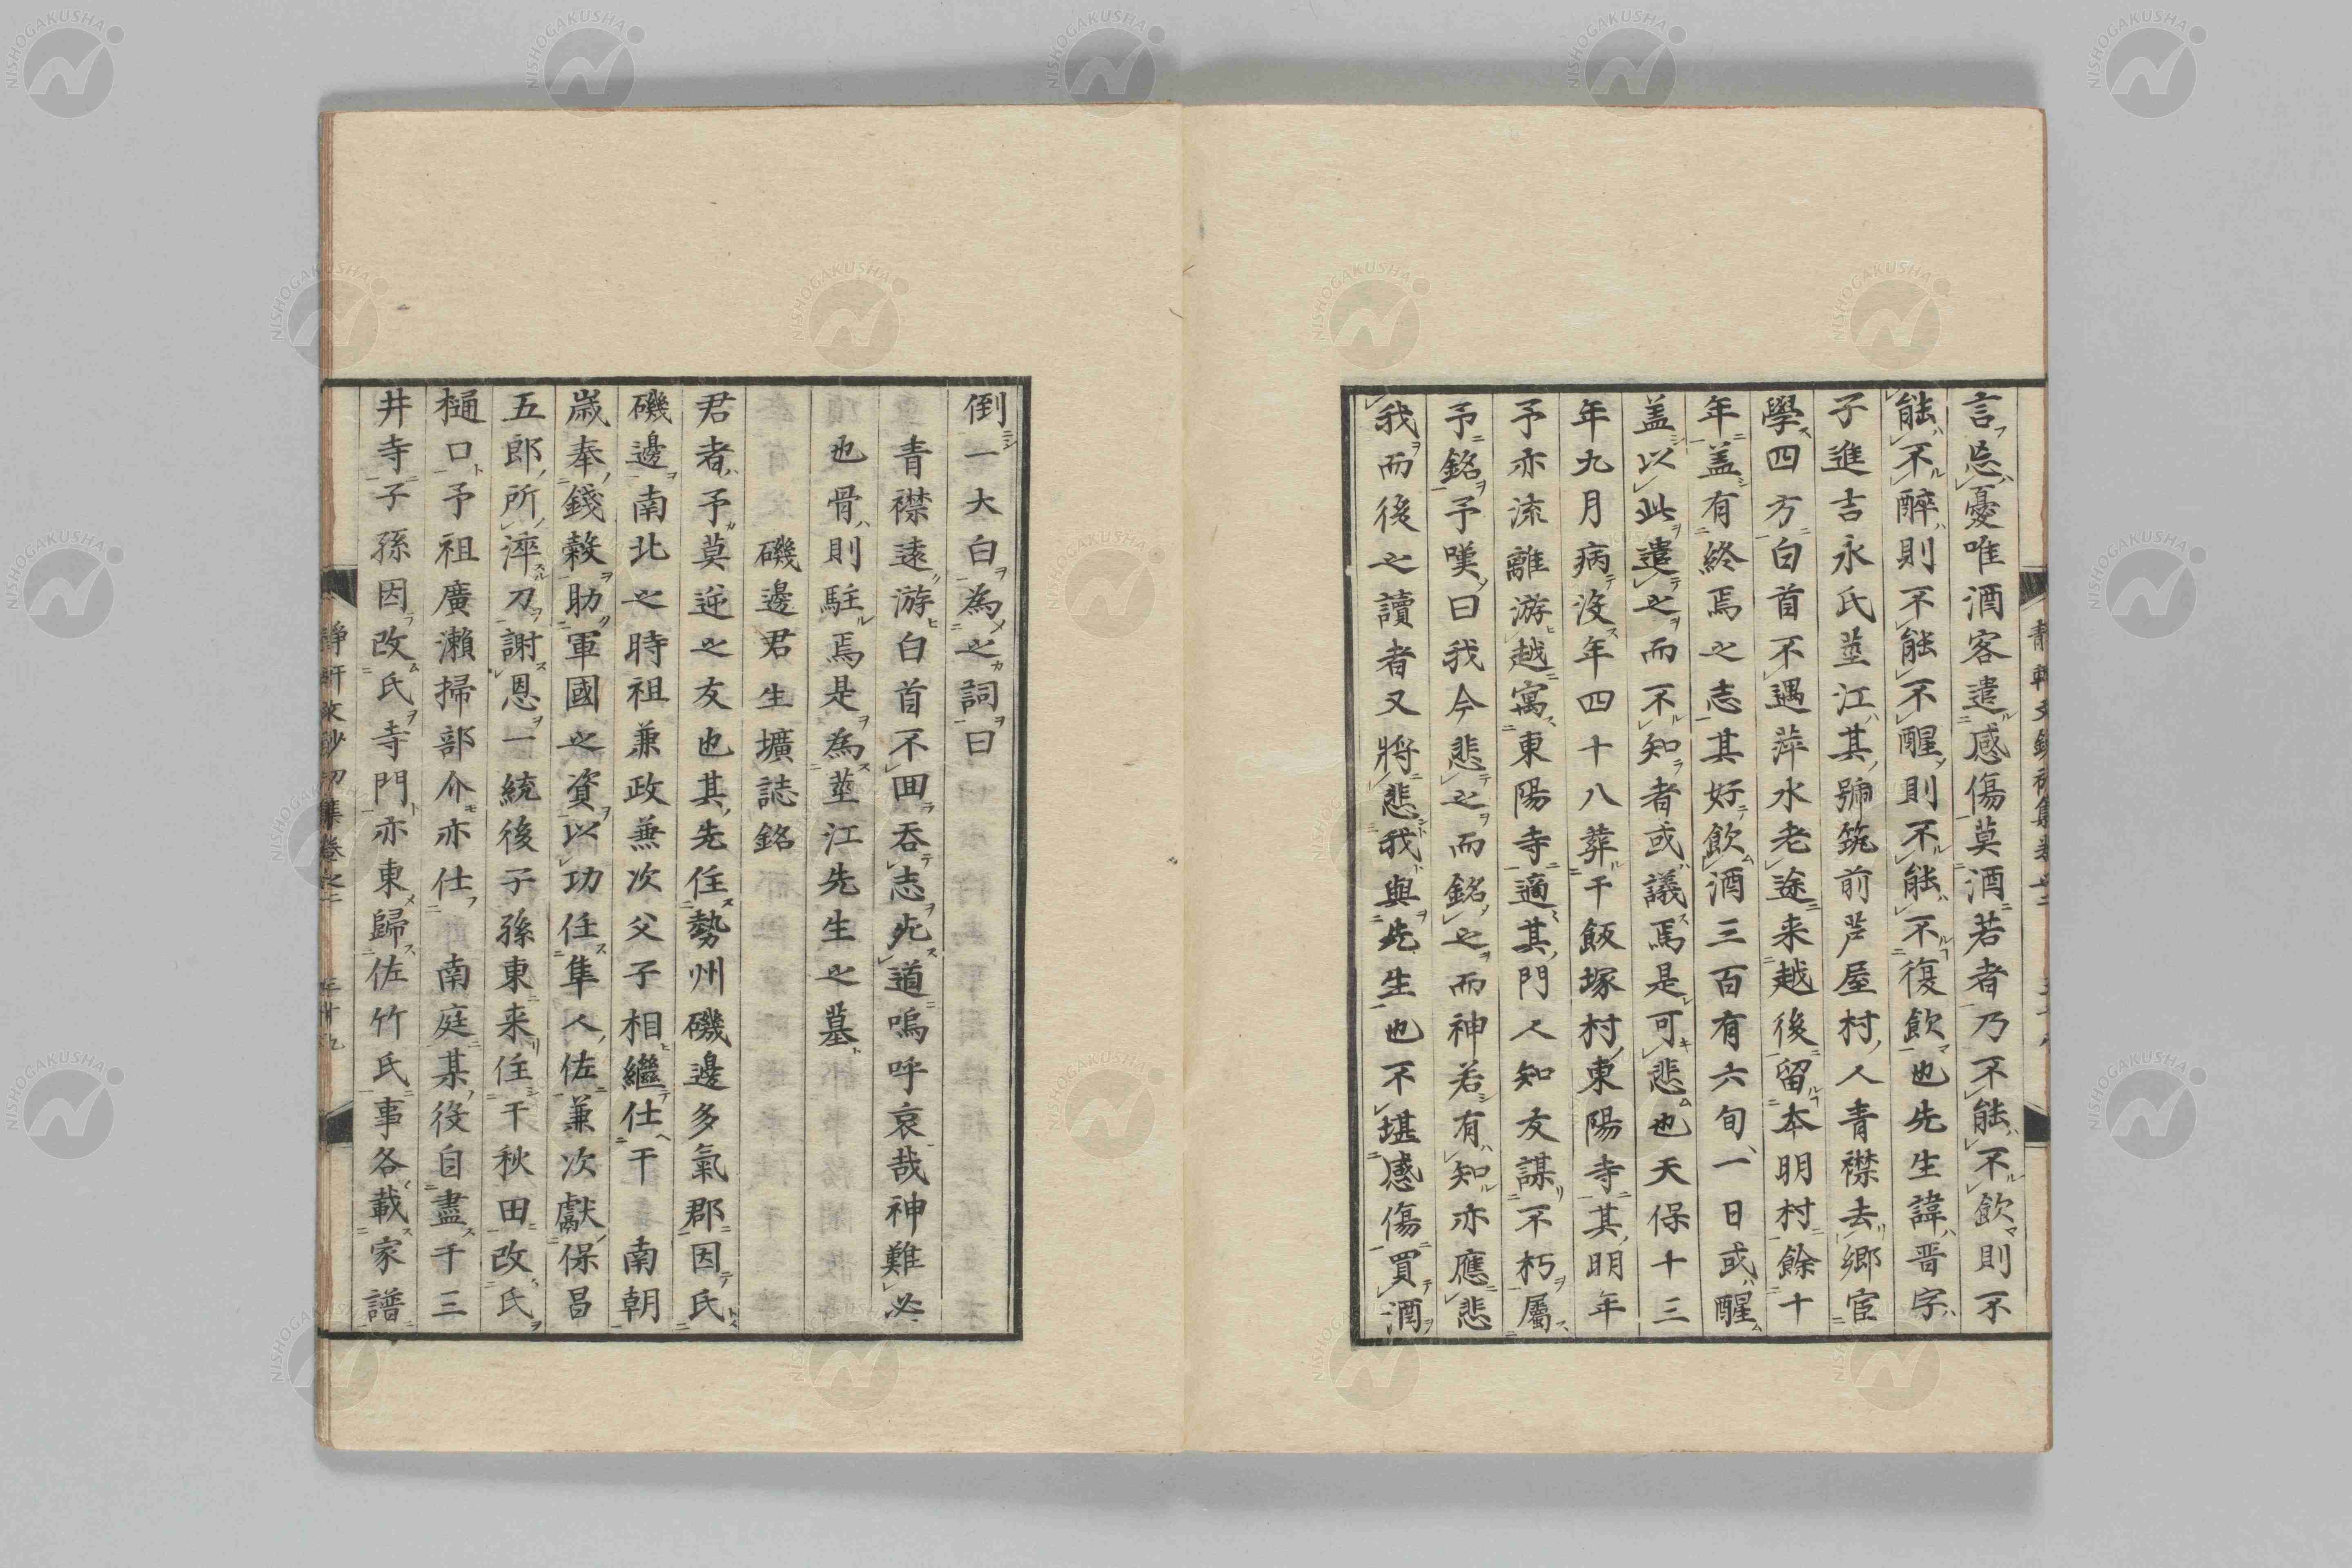 言忘憂唯酒客遣感傷莫酒若者乃不能不飲則不
能不醉則不能不醒則不能不復飲也先生諱晋字
子進吉永氏莖江其號筑前芦屋村人青襟去鄉宦
學四方白首不遇萍水老途来越後留本明村餘十
年盖有終焉之志其好飲酒三百有六旬一日或醒
盖以此遣之而不知者或議焉是可悲也天保十三
年九月病沒年四十八葬于飯塚村東陽寺其明年
予亦流離游越寓東陽寺適其門人知友謀不朽屬
予銘予嘆曰我今悲之而銘之而神若有知亦應悲
我而後之讀者又將悲我與先生也不堪感傷買酒
倒一大白為之詞曰
青襟遠游白首不囬吞志死道嗚呼哀哉神難必
也骨則駐焉是為莖江先生之墓
磯邊君生壙誌銘
君者予莫逆之友也其先住勢州磯邊多氣郡因氏
磯邊南北之時祖兼政兼次父子相繼仕于　南朝
歳奉錢穀助軍國之資以功任隼人佐兼次獻保昌
五郎所淬刀謝恩一統後子孫東来住于秋田改氏
樋口予祖廣瀨掃部介亦仕　南庭某役自盡于三
井寺子孫因改氏寺門亦東歸佐竹氏事各載家譜
靜軒文鈔初集卷之二